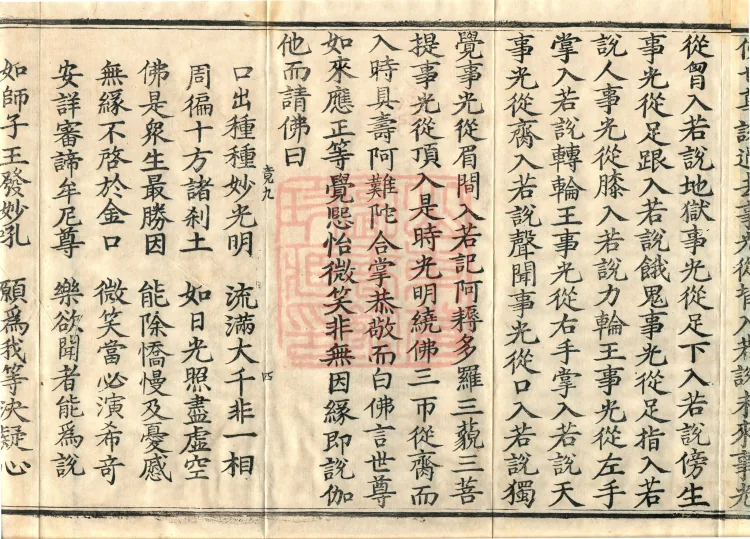 事光從背入若說未來事光
從胷入若說地獄事光從足下入若說傍生
事光從足跟入若說餓鬼事光從足指入若
說人事光從膝入若說力輪王事光從左手
掌入若說轉輪王事光從右手掌入若說天
事光從齊入若說聲聞事光從口入若說獨
覺事光從眉間入若記阿耨多羅三藐三菩
提事光從頂入是時光明繞佛三帀從齊而
入時具壽阿難陀合掌恭敬而白佛言世尊
如來應正等覺熈怡微笑非無因緣即說伽
他而請佛曰
竟九 四
口出種種妙光明 流滿大千非一相
周徧十方諸刹土 如日光照盡虛空
佛是衆生最勝因 能除憍慢及憂慼
無緣不啓於金口 微笑當必演希奇
安詳審諦牟尼尊 樂欲聞者能爲說
如師子王發妙吼 願爲我等決疑心